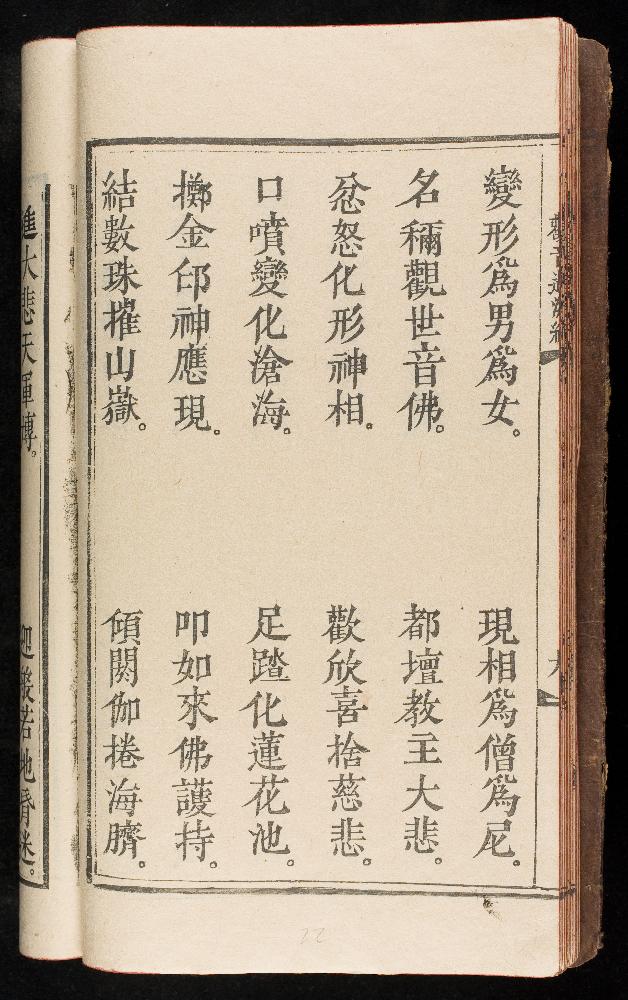 變形爲男爲女。現相爲僧爲尼。
名稱觀世音佛。都壇教主大悲。
忿怒化形神相。歡欣喜捨慈悲。
口噴變化滄海。足踏化蓮花池。
擲金印神應現。叩如來佛護持。
結數珠摧山嶽。傾閼伽捲海臍。
大悲天
般若地昏迷。
22